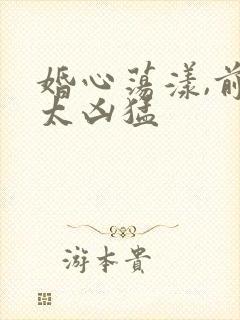 婚心荡漾,前
太凶猛
游本贵